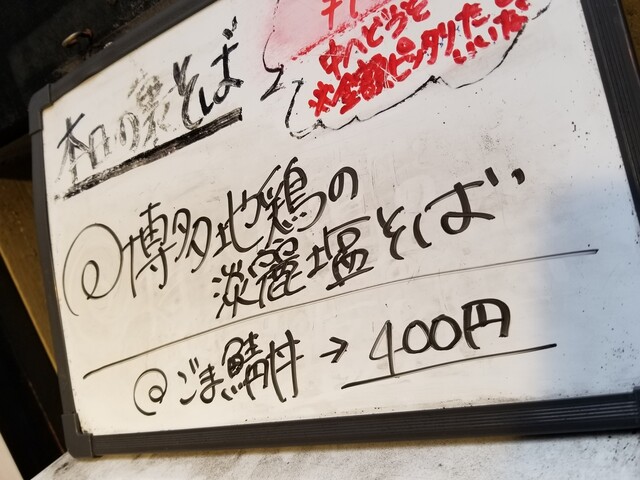 本日の裏そば
中へどうぞ
※全額ピッタリだと
いいな
@博多地鶏の
淡麗塩そば
@ごま鯖丼→400円